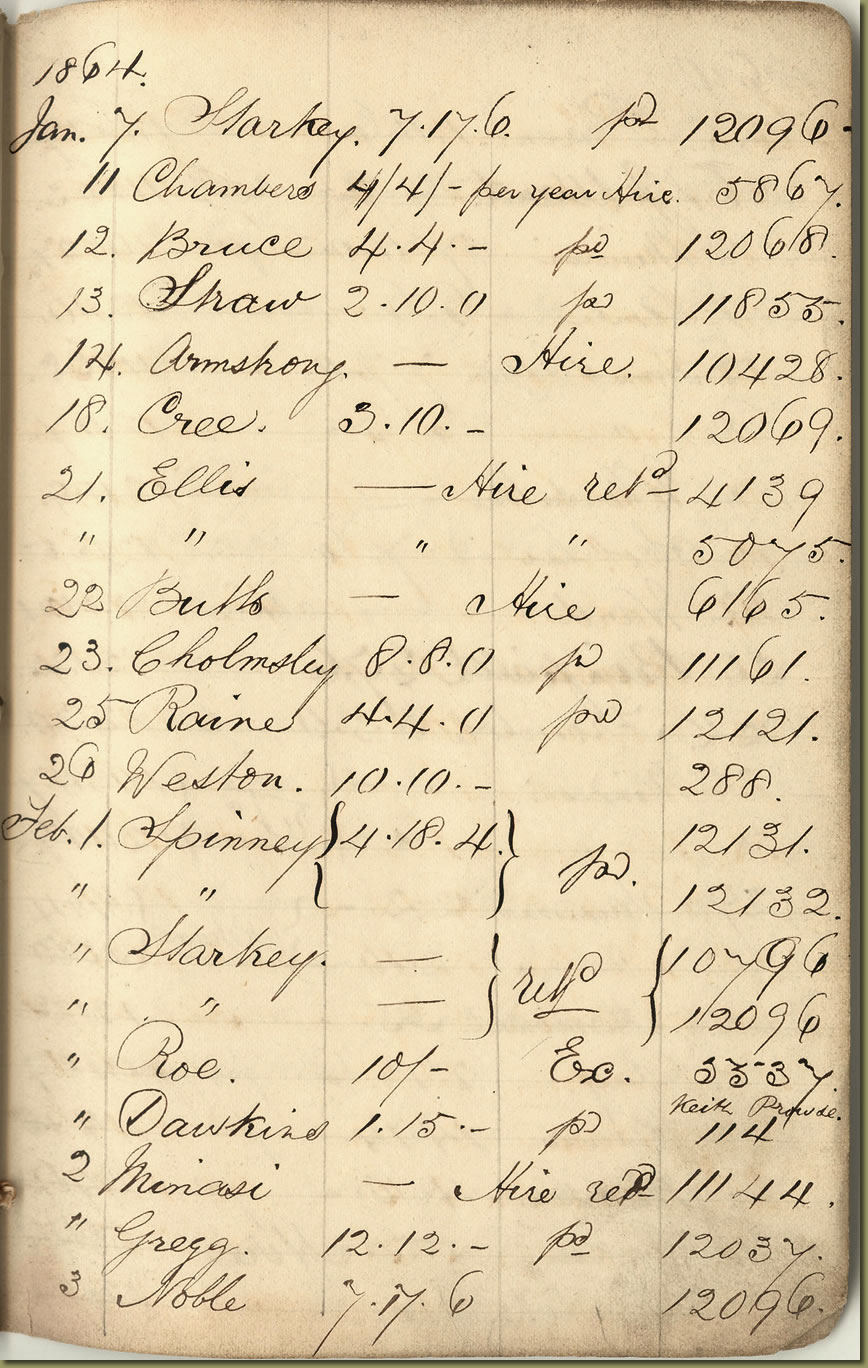 1864.
Jan. 7. Starkey. 7.17.6. pd 12096.
11 Chambers 4/4/- per year Hire. 5867.
12. Bruce 4.4.- pd 12068.
13. Shaw 2.10.0 pd 11855.
14. Armstrong. — Hire. 10428.
18. Cree. 3.10.- 12069.
21. Ellis — Hire retd 4139
" " " " 5075.
22 Butts — Hire 6165.
23. Cholmsley 8.8.0 pd 11161.
25 Raine 4.4.0 pd 12121.
26 Weston. 10.10.- 288.
Feb. 1. Spinney } 4.18.4. } pd. 12131.
" " 12132.
" Starkey. — } retd { 10796
" " — 12096
" Roe. 10/- Ex. 5537
" Dawkins 1.15.- pd Keith Prowse. 114
2 Minasi — Hire retd 11144.
" Gregg. 12.12.- pd 12037.
3 Noble 7.17.6 12096.